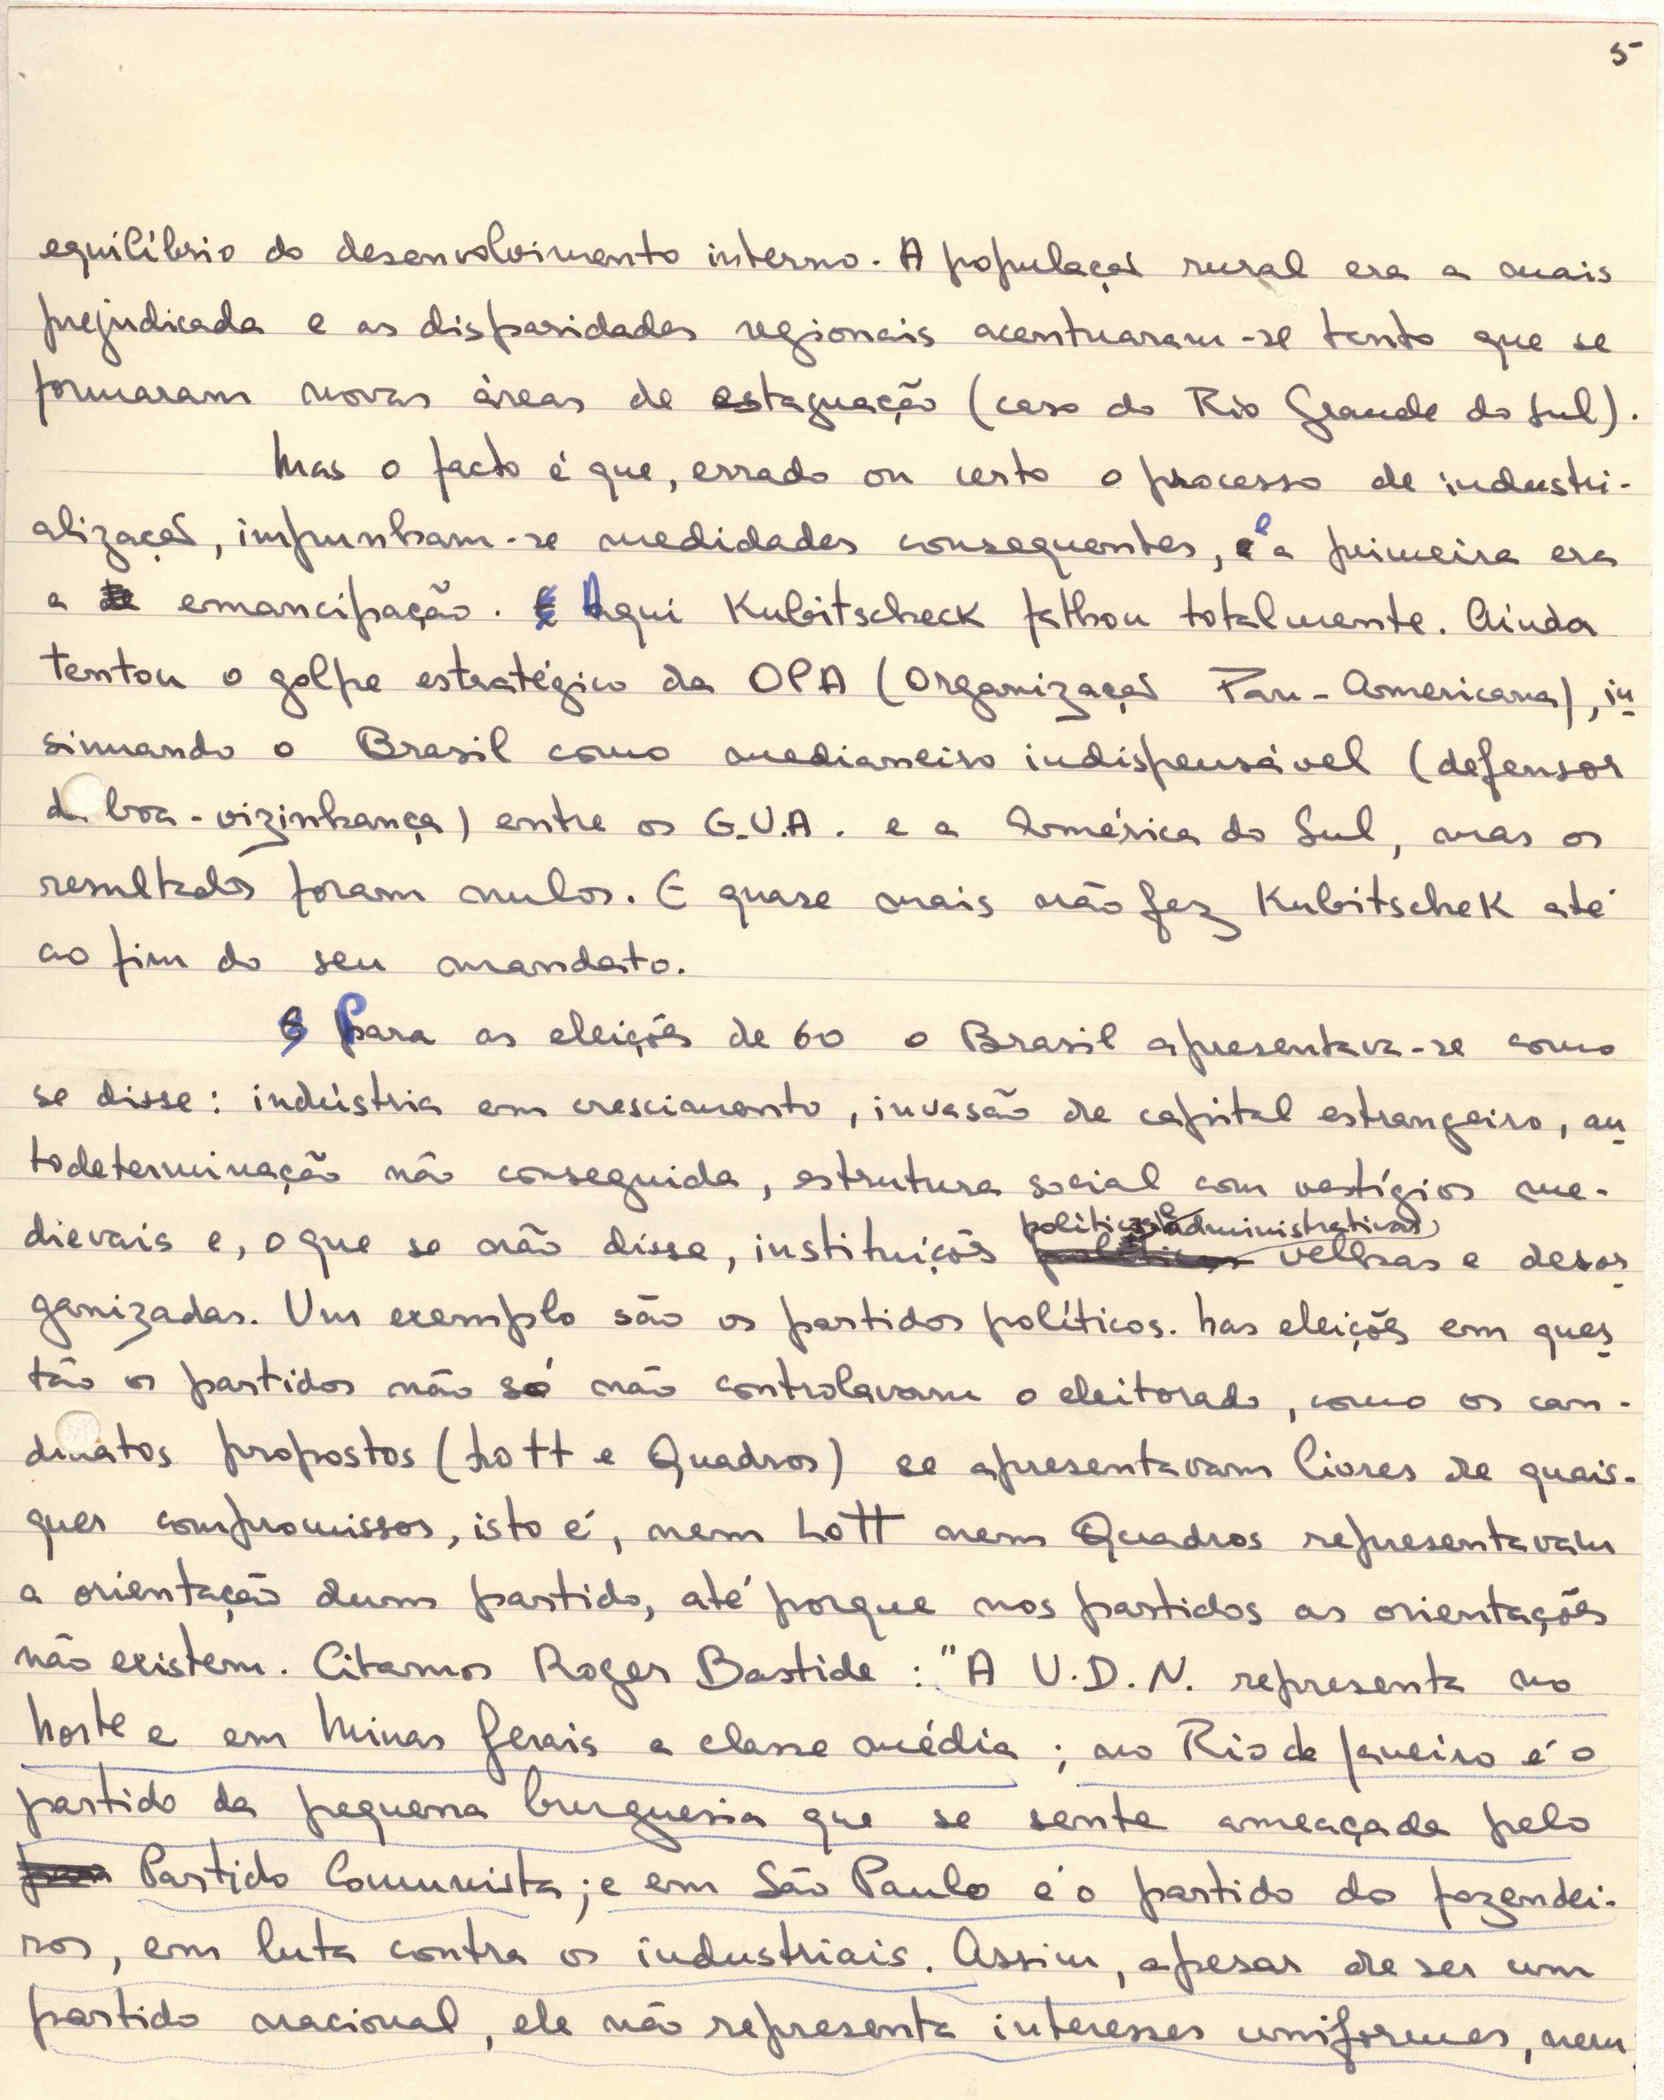 5
equilíbrio do desenvolvimento interno. A população rural era a mais
prejudicada e as disparidades regionais acentuaram-se tanto que se
formaram novas áreas de estagnação (caso do Rio Grande do Sul).
Mas o facto é que, errado ou certo o processo de industri-
alização, impunham-se medidades consequentes, e a primeira era
a emancipação. Aqui Kubitscheck falhou totalmente. Ainda
tentou o golpe estratégico da OPA (Organização Pan-Americana), in
sinuando o Brasil como medianeiro indispensável (defensor
da boa-vizinhança) entre os E.U.A. e a América do Sul, mas os
resultados foram nulos. E quase mais não fez Kubitschek até
ao fim do seu mandato.
Para as eleições de 60 o Brasil apresentava-se como
se disse: indústria em crescimento, invasão de capital estrangeiro, au
todeterminação não conseguida, estrutura social com vestígios me-
dievais e, o que se não disse, instituições políticas e administrativas velhas e desor
ganizadas. Um exemplo são os partidos políticos. Nas eleições em ques
tão os partidos não só não controlavam o eleitorado, como os can-
didatos propostos (Lott e Quadros) se apresentavam livres de quais-
quer compromissos, isto é, nem Lott nem Quadros representavam
a orientação dum partido, até porque nos partidos as orientações
não existem. Citamos Roger Bastide : "A U.D.N. representa no
Norte e em Minas Gerais a classe média ; no Rio de Janeiro é o
partido da pequena burguesia que se sente ameaçada pelo
Partido Comunista; e em São Paulo é o partido do fazendei-
ros, em luta contra os industriais. Assim, apesar de ser um
partido nacional, ele não representa interesses uniformes, nem